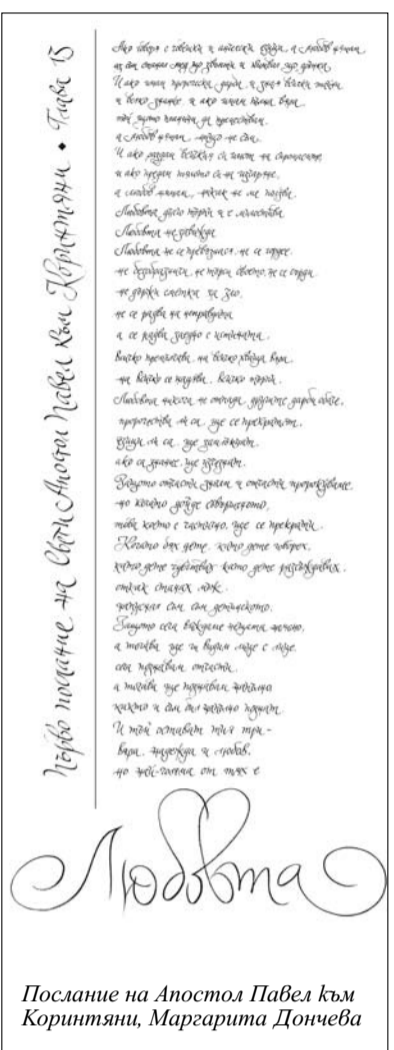 Първо послание на Свети Апостол Павел към Коринтяни ♦ Глава 13
Ако говоря с човешки и ангелски езици, а любов нямам,
И ако имам пророческа дарба, и зная всички тайни
и всяко знание, и ако имам пълна вяра,
а любов нямам, нищо не съм.
И ако раздам всичкия си имот на сиромасите
и ако предам тялото си на изгаряне,
а любов нямам, никак не ме ползва.
Любовта дълго търпи и е милостива
Любовта не завижда
Любовта не се превъзнася, не се гордее.
не безобразничи, не търси своето, не се сърди
не държи сметка за зло,
не се радва на неправдата
а се радва заедно с истината.
Всичко премълчава, на всичко хваща вяра,
на всичко се надява, всичко търпи.
Любовта никога не отпада, другите дарби обаче,
пророчества ли са, ще се прекратят,
езици ли са, ще замлъкнат,
ако са знание, ще изчезнат.
Защото отчасти знаем и отчасти пророкуваме,
но когато дойде съвършеното,
това което е частично, ще се прекрати.
Когато бях дете, като дете говорех,
като дете чувствах като дете разсъждавах.
откак станах мъж,
напуснал съм детинското.
Защото сега виждаме неясно
а тогава ще видим лице с лице.
сега познавам отчасти,
а тогава ще познавам напълно
както и съм бил напълно познат.
И тъй остават тия три-
вяра, надежда и любов,
но най-голяма от тях е
Любовта
Послание на Апостол Павел към
Коринтяни, Маргарита Дончева